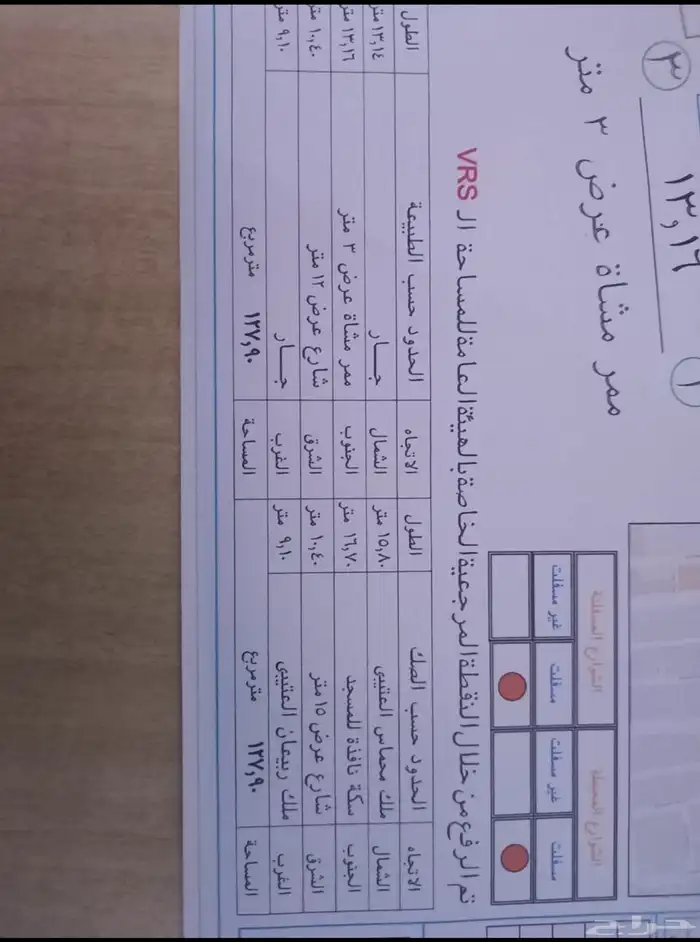 ١ ١٣,١٦ ٣
ممر مشاة عرض ٣ متر
الشوارع المحيطة الشوارع
مسفلت غير مسفلت مسفلت غير مسفلت
تم الرفع من خلال النقطة المرجعية الخاصة بالهيئة العامة للمساحة ال VRS
الاتجاه الحدود حسب الصك الطول الاتجاه الحدود حسب الطبيعة الطول
الشمال ملك محماس العتيبى ١٥,٨٠ متر الشمال جــار ١٣,١٤ متر
الجنوب سكة نافذة للمسجد ١٦,٧٠ متر الجنوب ممر مشاة عرض ٣ متر ١٣,١٦ متر
الشرق شارع عرض ١٥ متر ١٠,٤٠ متر الشرق شارع عرض ١٢ متر ١٠,٤٠ متر
الغرب ملك ربيعان العتيبى ٩,١٠ متر الغرب جــار ٩,١٠ متر
المساحة ١٢٧,٩٠ مترمربع المساحة ١٢٧,٩٠ مترمربع
حراج